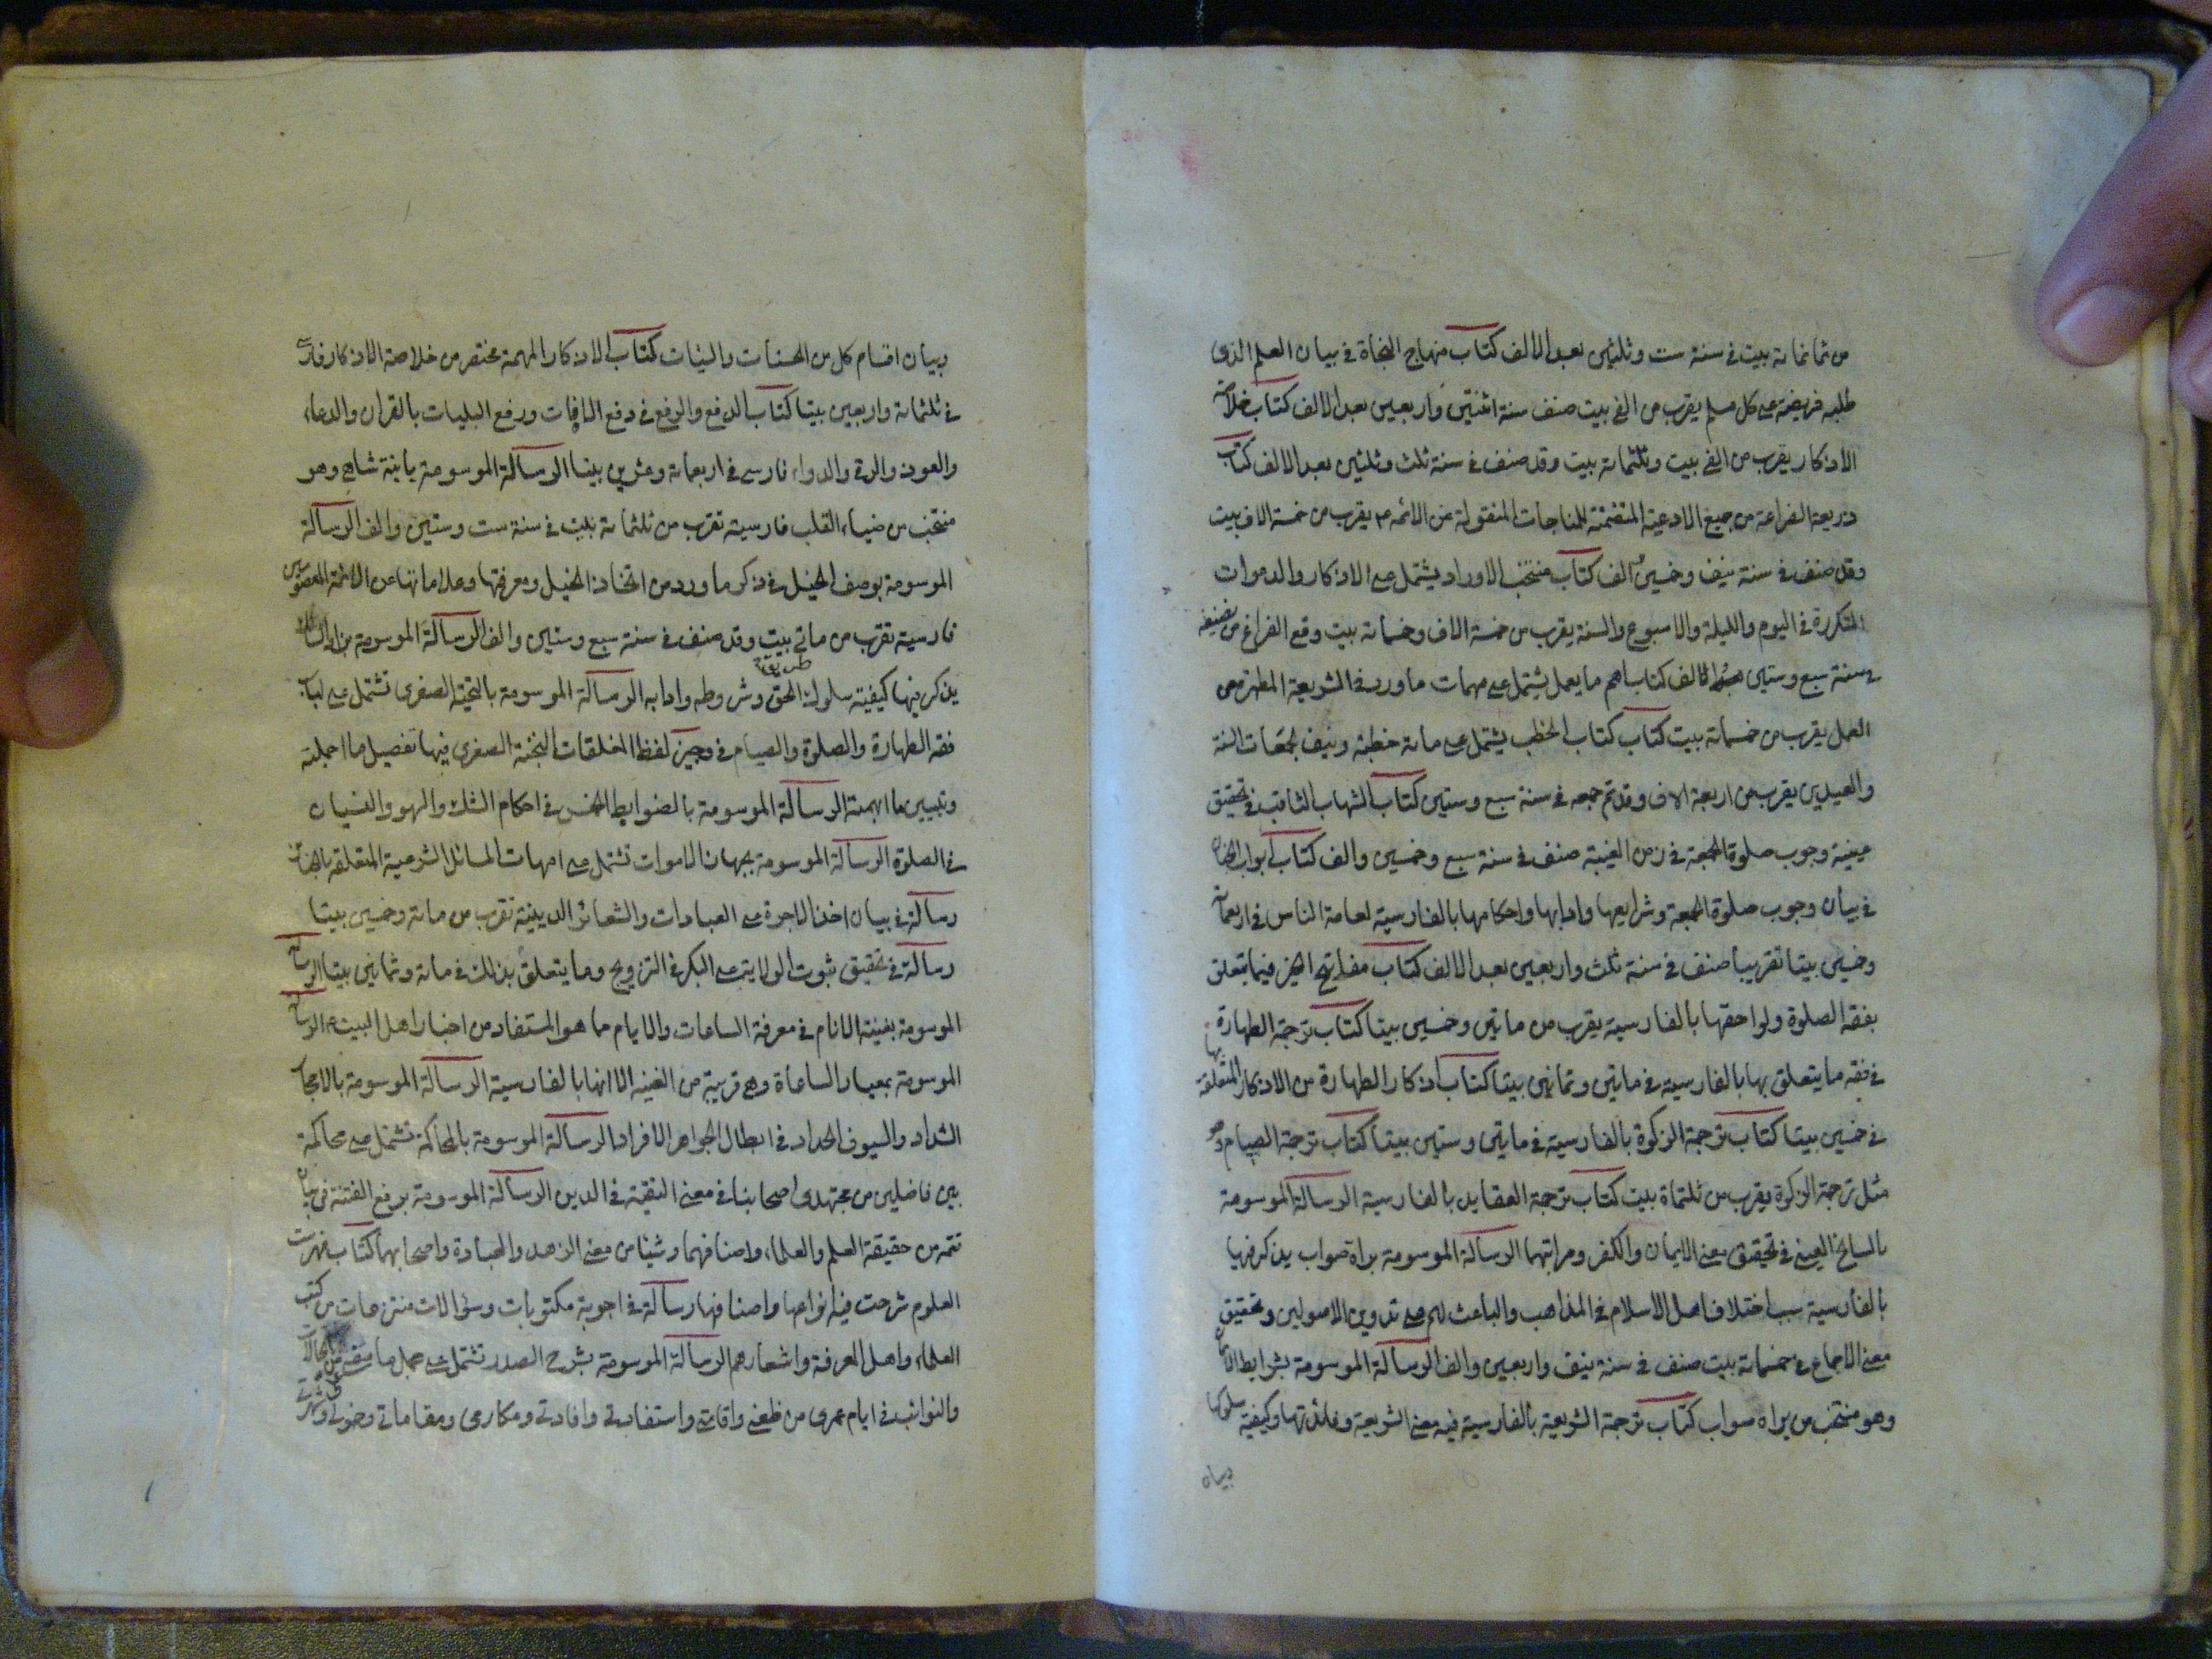 من ثمانمائة بيت في سنة ست وثلثين بعد الالف كتاب منهاج النجاة في بيان العلم الذى
طلبه فريضة على كل مسلم يقرب من الفى بيت صنف سنة اثنتين واربعين بعد الالف كتاب خلاصة
الاذكار يقرب من الفى بيت وثلثمائة بيت وقد صنف في سنة ثلث وثلثين بعد الالف كتاب
ذريعة الضراعة من جميع الادعية المتضمنة للمناجات المنقولة عن الائمة ع يقرب من خمسة الاف بيت
وقد صنف في سنة نيف وخمسين والف كتاب منتخب الاوراد يشتمل على الاذكار والدعوات
المتكررة في اليوم والليلة والاسبوع والسنة يقرب من خمسة الاف وخمسمائة بيت وقع الفراغ من تصنيفه
في سنة سبع وستين بعد الالف كتاب اهم ما يعمل يشتمل على مهمات ما ورد في الشريعة المطهرة من
العمل يقرب من خمسمائة بيت كتاب كتاب الخطب يشتمل على مائة خطبة ونيف لجمعات السنة
والعيدين يقرب من اربعة الاف وقد تم جمعه في سنة سبع وستين كتاب الشهاب الثاقب في تحقيق
عينية وجوب صلوة الجمعة في زمن الغيبة صنف في سنة سبع وخمسين والف كتاب ابواب الجنان
في بيان وجوب صلوة الجمعة وشرايعها وادابها واحكامها بالفارسية لعامة الناس في اربعمائة
وخمسين بيتا تقريبا صنف في سنة ثلث واربعين بعد الالف كتاب مفاتيح الخير فيما يتعلق
بفقه الصلوة ولواحقها بالفارسية يقرب من مايتين وخمسين بيتا كتاب ترجمة الطهارة
في فقه ما يتعلق بها بالفارسية في مايتين وثمانين بيتا كتاب اذكار الطهارة من الاذكار المتعلقة بها
في خمسين بيتا كتاب ترجمة الزكوة بالفارسية في مايتين وستين بيتا كتاب ترجمة الصيام وهو
مثل ترجمة الزكوة يقرب من ثلثمائة بيت كتاب ترجمة العقايد بالفارسية الرسالة الموسومة
بالسانح الغيبى في تحقيق معنى الايمان والكفر ومراتبهما الرسالة الموسومة براه صواب يذكر فيها
بالفارسية سبب اختلاف اهل الاسلام في المذاهب والباعث لهم على تدوين الاصولين وتحقيق
معنى الاجماع في خمسمائة بيت صنف في سنة نيف واربعين والف الرسالة الموسومة بشرايط الايمان
وهو منتخب من براه صواب كتاب ترجمة الشريعة بالفارسية فيه معنى الشريعة وفائدتها وكيفية سلوكها
وبيان
وبيان اقسام كل من الحسنات والسيئات كتاب الاذكار المهمة مختصر من خلاصة الاذكار فارسى
في ثلثمائة واربعين بيتا كتاب الدفع والرفع في دفع الافات ورفع البليات بالقران والدعاء
والعوذ والرقى والدواء فارسى في اربعمائة وعشرين بيتا الرسالة الموسومة باينة شاهى وهو
منتخب من ضياء القلب فارسية تقرب من ثلثمائة بيت في سنة ست وستين والف الرسالة
الموسومة بوصف الخيل في ذكر ما ورد من اتخاذ الخيل ومعرفتها وعلاماتها عن الائمة المعصومين
فارسية تقرب من مائتى بيت وقد صنف في سنة سبع وستين والف الرسالة الموسومة بزاد السالك
يذكر فيها كيفية سلوك طريق الحق وشروطه وادابه الرسالة الموسومة بالنخبة الصغرى تشتمل على لباب
فقه الطهارة والصلوة والصيام في وجيز لفظ المغلقات النخبة الصغرى فيها تفصيل ما اجملته
وتبيين ما ابهمته الرسالة الموسومة بالضوابط الخمس في احكام الشك والسهو والنسيان
في الصلوة الرسالة الموسومة بجهاز الاموات تشتمل على امهات المسائل الشرعية المتعلقة بالجنائز
رسالة في بيان اخذ الاجرة على العبادات والشعائر الدينية تقرب من مائة وخمسين بيتا
رسالة في تحقيق ثبوت الولاية على البكر في التزويج وما يتعلق بذلك في مائة وثمانين بيتا الرسالة
الموسومة بغنية الانام في معرفة الساعات والايام مما هو المستفاد من اخبار اهل البيت ع الرسالة
الموسومة بمعيار الساعاة وهى قريبة من الغنية الا انها بالفارسية الرسالة الموسومة بالاحجار
الشداد والسيوف الحداد في ابطال الجواهر الافراد الرسالة الموسومة بالمحاكمة تشتمل على محاكمة
بين فاضلين من مجتهدى اصحابنا في معنى التفقه في الدين الرسالة الموسومة برفع الفتنة في بيان
تتمه من حقيقة العلم والعلماء واصنافهما وشيئا من معنى الزهد والعبادة واصحابهما كتاب فهرست
العلوم شرحت فيه انواعها واصنافها رسالة في اجوبة مكتوبات وسؤالات منتزعات من كتب
العلماء واهل المعرفة واشعارهم الرسالة الموسومة بشرح الصدر تشتمل على جمل ما مضى من الحالات
والنوائب في ايام عمرى من ظعنى واقامتى واستفادتى وافادتى ومكارمى ومقاماتى وخمولى وشهرتى